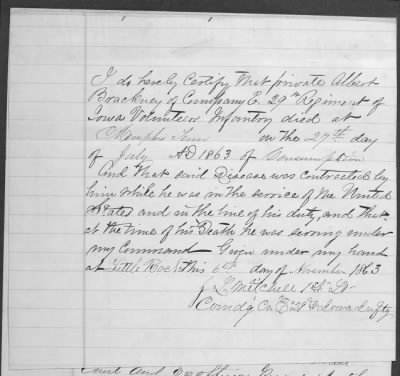 I do hereby certify that private Albert
Brackney of Company E. 29th Regiment of
Iowa Volunteer Infantry died at
Memphis Tenn on the 27th day
of July AD 1863 of Consumption
And that said Disease was contracted by
him while he was in the service of the United
States and in the line of his duty, and that
at the time of his Death he was serving under
my Command Given under my hand
at Little Rock this 6th day of November 1863
J. L. Mitchell 1st Lt
Comdg Co. E. 29 Iowa Infty